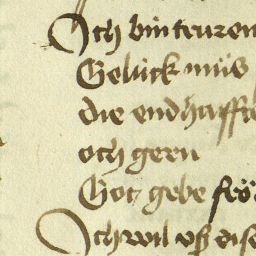 Ich bin truren
Gelück müs
die endhafft
och gern
Got gebe frö
Ich wil vß dise